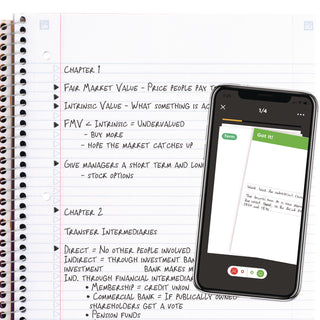 Chapter 1
Fair Market Value - Price people pay
Intrinsic Value - What something is
FMV < Intrinsic = Undervalued
- buy more
- hope the market catches up
Give managers a short term and
- stock options
Chapter 2
Transfer Intermediaries
Direct = No other people involved
Indirect = through investment
investment bank makes
Ind. through financial
• Membership = credit union
• Commercial bank = if publically owned
shareholders get a vote
• Pension funds
1/4
Term
Got It!